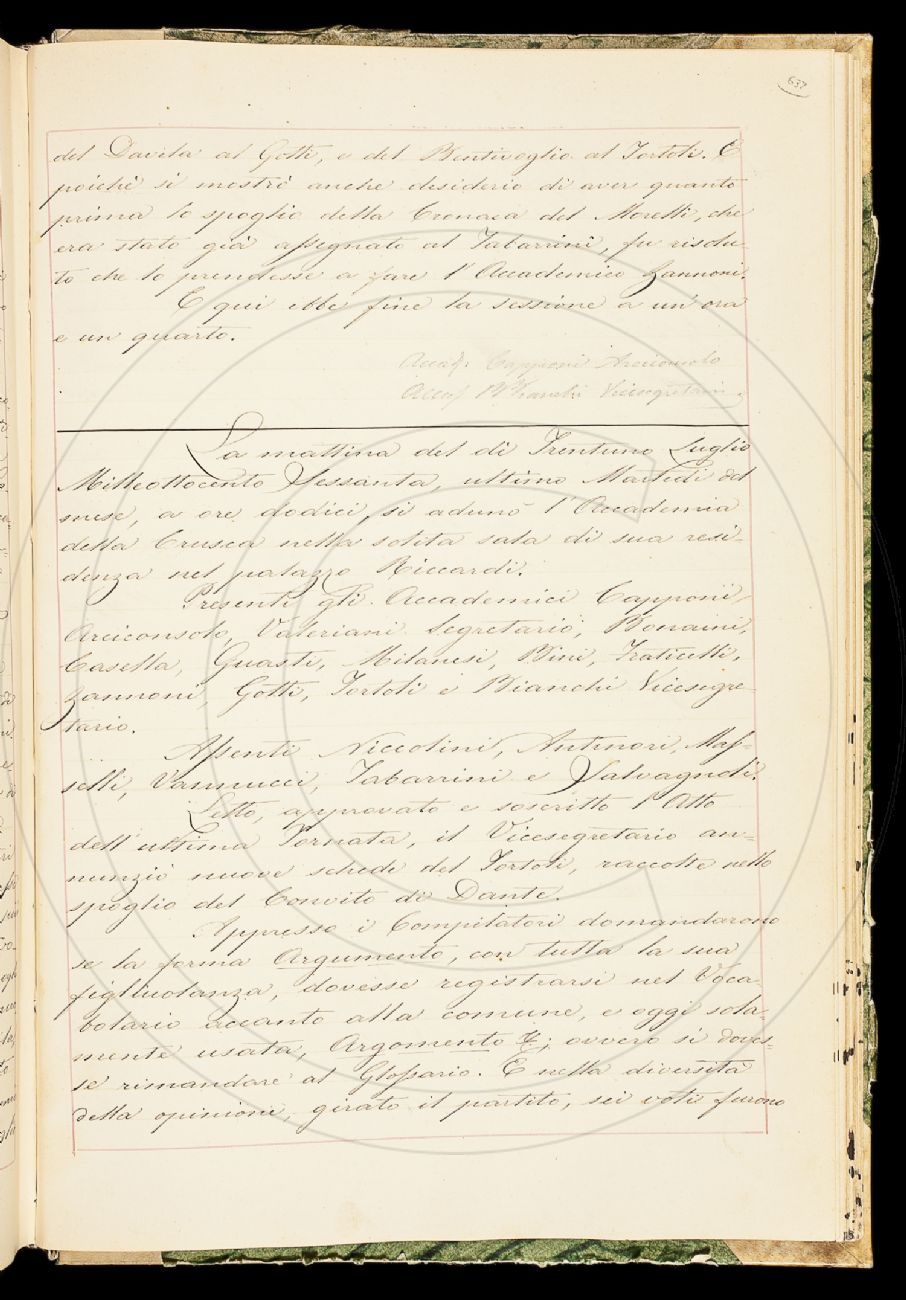 637
del Davila al Gotti, e del Bentivoglio al Tortoli. E
poichè si mostrò anche desiderio di aver quanto
prima lo spoglio della Cronaca del Morelli, che
era stato già assegnato al Tabarrini, fu risolu-
to che lo prendesse a fare l'Accademico Zannoni.
E qui ebbe fine la sessione a un'ora
e un quarto.
Accad. Capponi Arciconsolo
Accad. Bianchi Vicesegretario.
La mattina del dì Trentuno Luglio
Milleottocento Sessanta, ultimo Martedì del
mese, a ore dodici, si adunò l'Accademia
della Crusca nella solita sala di sua resi-
denza nel palazzo Riccardi.
Presenti gli Accademici Capponi,
Arciconsolo, Valeriani Segretario, Bonaini,
Casella, Guasti, Milanesi, Bini, Fraticelli,
Zannoni, Gotti, Tortoli e Bianchi Vicesegre-
tario.
Assenti Niccolini, Antinori, Mas-
selli, Vannucci, Tabarrini e Salvagnoli.
Letto, approvato e soscritto l'Atto
dell'ultima Tornata, il Vicesegretario an-
nunziò nuove schede del Tortoli, raccolte nello
spoglio del Convito di Dante.
Appresso i Compilatori domandarono
se la forma Argumento, con tutta la sua
figliuolanza, dovesse registrarsi nel Voca-
bolario accanto alla comune, e oggi sola-
mente usata, Argomento &; ovvero si doves-
se rimandare al Glossario. E nella diversità
della opinione, girato il partito, sei voti furono